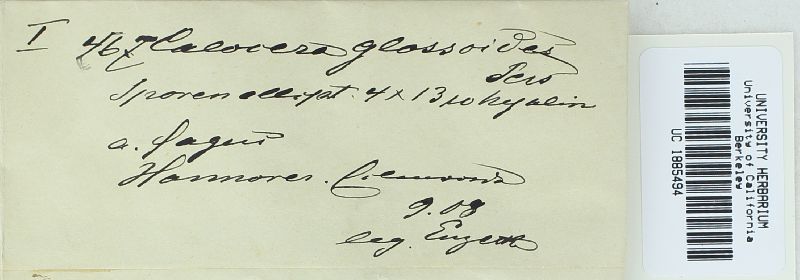 I 467 Calocera glossoides
Pers
Sporen ellipt. 4 x 13 µ hyalin
a. Fagus
Hannover.
9.08
leg. Engelke
UNIVERSITY HERBARIUM
University of California
Berkeley
UC 1885494